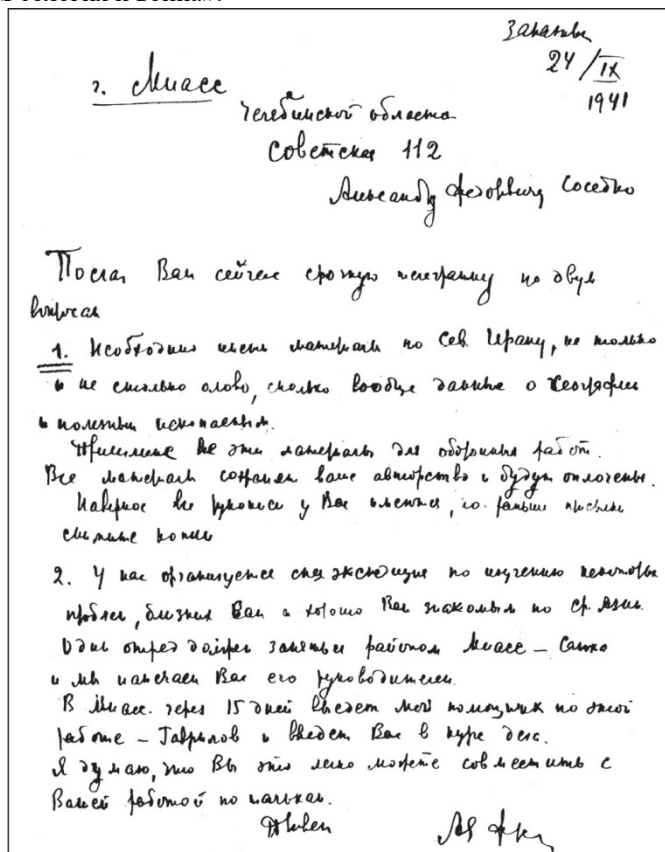 24/IX
1941
г. Миасс
Челябинской области
Советская 112
Александру Федоровичу Соседко
Послал Вам сейчас срочную телеграмму по двум
вопросам
1. Необходимо иметь материалы по Сев. Ирану, не только
и не столько олово, сколько вообще данные о географии
и полезным ископаемым.
же эти материалы для оборонных работ.
Все материалы сохраняют ваше авторство и будут оплочены.
Наверное все рукописи у Вас имеются, но раньше
снимите копии
2. У нас организуется спец экспедиция по изучению некоторых
проблем, близких Вам и хорошо Вам знакомым по Ср. Азии.
Один отряд должен заняться районом Миасс –
и мы намечаем Вас его руководителем.
В Миасс. через 15 дней выедет мой помощник по этой
работе – Гаврилов и введет Вас в курс дела.
Я думаю, что Вы это легко можете совместить с
Вашей работой по